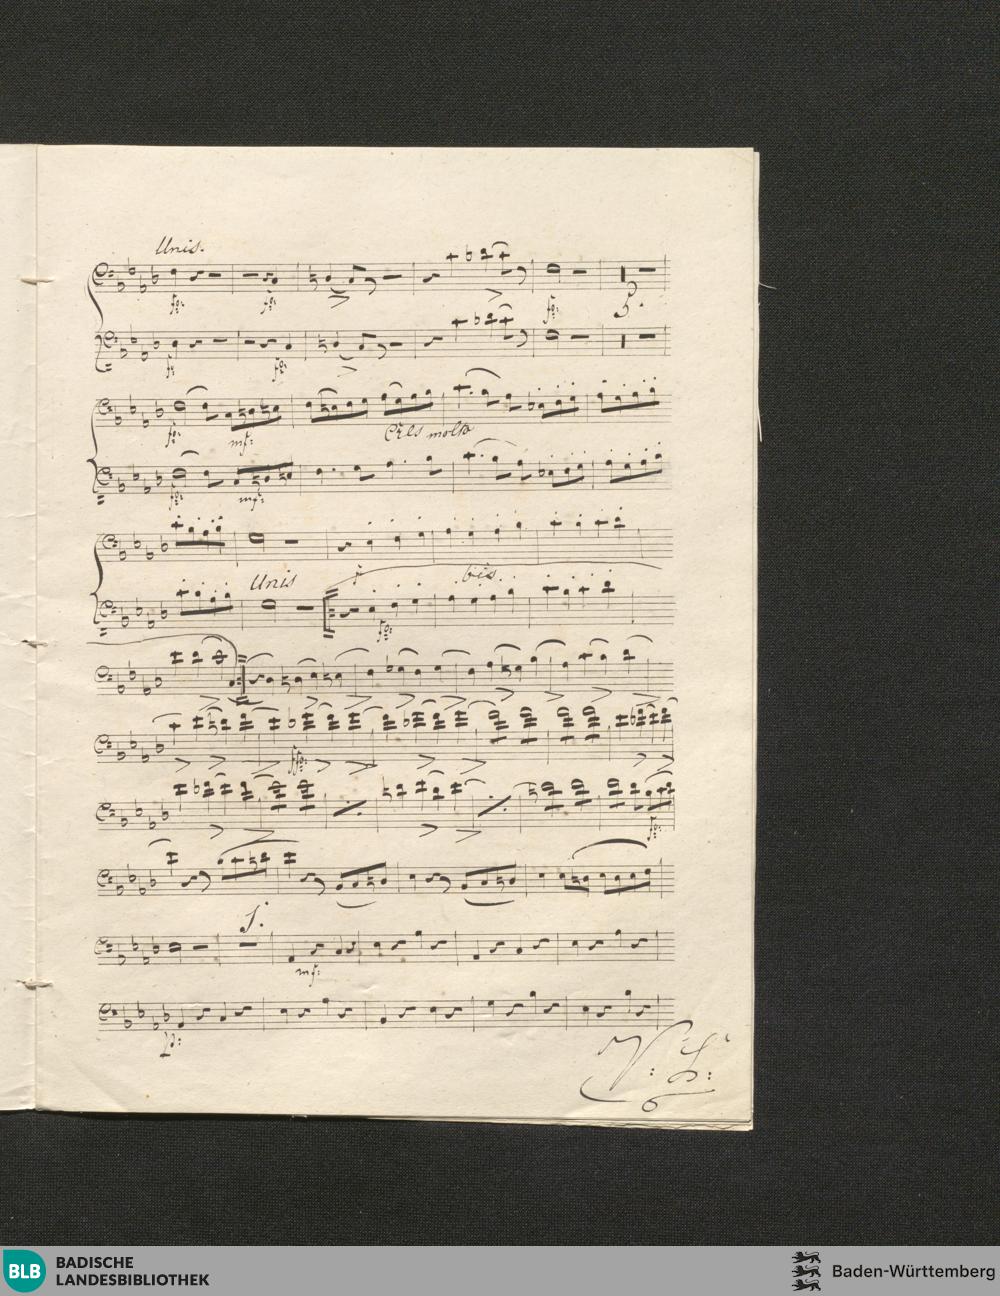 Unis.
fo: fo: fo:
3.
fo: fo:
fo: mf: Cres molto
fo: mf:
Unis bis
fo:
ffo:
fo:
1.
mf:
p:
V: S:
BLB BADISCHE
LANDESBIBLIOTHEK
Baden-Württemberg